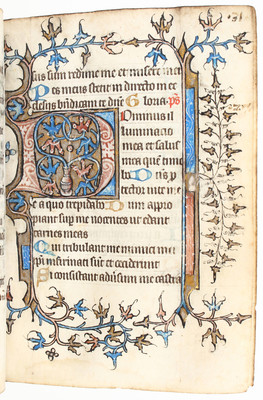 sus sum redime me et miserere mei
Pes meus stetit in directo in ec
clesiis benedicam te domine Gloria. ps
Dominus il
luminacio
mea et salus
mea quem time
bo Dominus pro
tector vite me
e a quo trepidabo Dum appro
piant sup me nocentes ut edant
carnes meas
Qui tribulant me inimici mei
ipsi infirmati sunt et ceciderunt
Si consistant adversum me castra